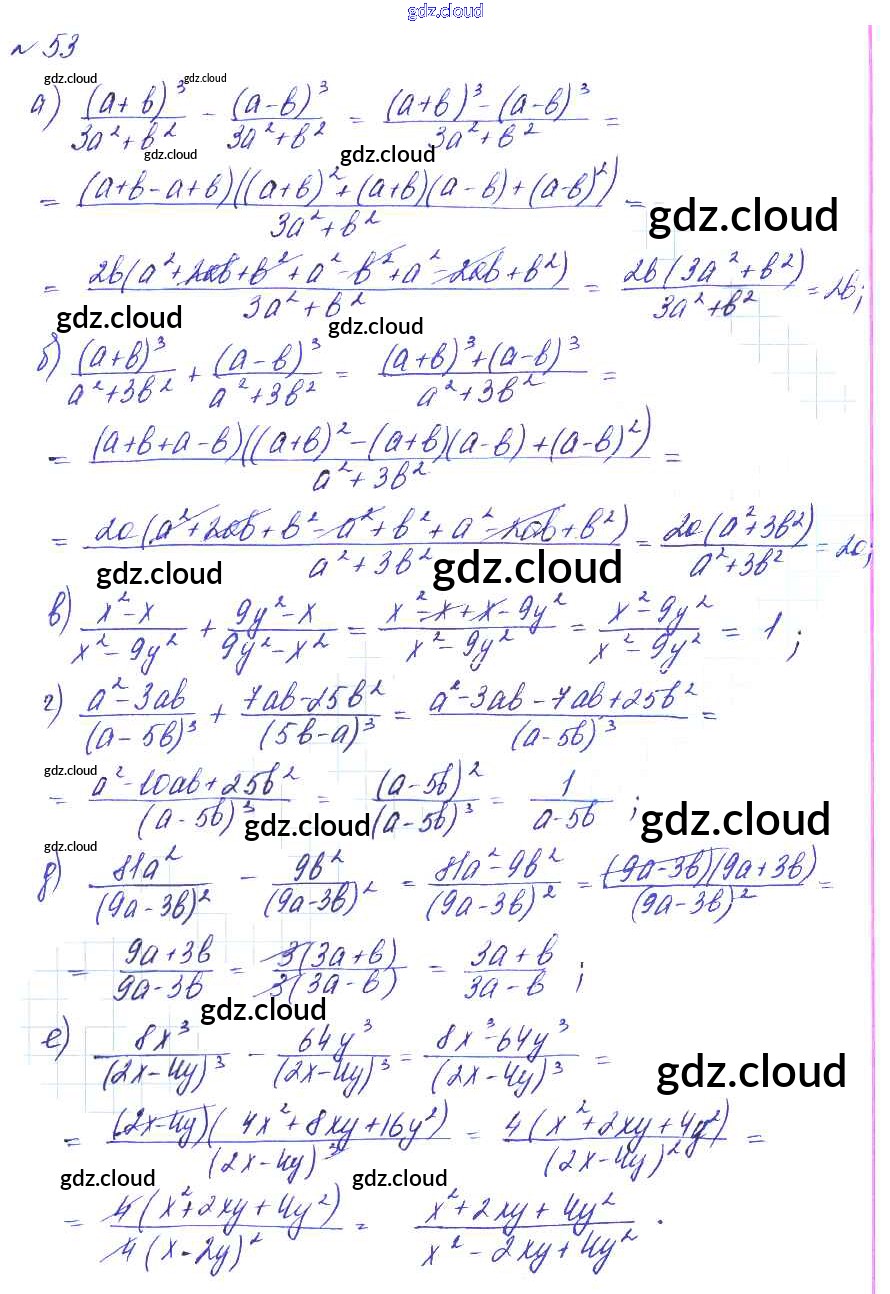 gdz.cloud
№ 53
gdz.cloud gdz.cloud
а) (a+b)³/(3a²+b²) − (a−b)³/(3a²+b²) = ((a+b)³−(a−b)³)/(3a²+b²) =
gdz.cloud gdz.cloud
= (a+b−a+b)((a+b)²+(a+b)(a−b)+(a−b)²)/(3a²+b²) =
gdz.cloud
= 2b(a²+2ab+b²+a²−b²+a²−2ab+b²)/(3a²+b²) = 2b(3a²+b²)/(3a²+b²) = 2b;
gdz.cloud gdz.cloud
б) (a+b)³/(a²+3b²) + (a−b)³/(a²+3b²) = ((a+b)³+(a−b)³)/(a²+3b²) =
= (a+b+a−b)((a+b)²−(a+b)(a−b)+(a−b)²)/(a²+3b²) =
= 2a(a²+2ab+b²−a²+b²+a²−2ab+b²)/(a²+3b²) = 2a(a²+3b²)/(a²+3b²) = 2a;
gdz.cloud gdz.cloud
в) (x²−x)/(x²−9y²) + (9y²−x)/(9y²−x²) = (x²−x+x−9y²)/(x²−9y²) = (x²−9y²)/(x²−9y²) = 1;
г) (a²−3ab)/(a−5b)³ + (7ab−25b²)/(5b−a)³ = (a²−3ab−7ab+25b²)/(a−5b)³ =
gdz.cloud
= (a²−10ab+25b²)/(a−5b)³ = (a−5b)²/(a−5b)³ = 1/(a−5b);
gdz.cloud gdz.cloud
gdz.cloud
д) 81a²/(9a−3b)² − 9b²/(9a−3b)² = (81a²−9b²)/(9a−3b)² = (9a−3b)(9a+3b)/(9a−3b)² =
= (9a+3b)/(9a−3b) = 3(3a+b)/3(3a−b) = (3a+b)/(3a−b);
gdz.cloud
е) 8x³/(2x−4y)³ − 64y³/(2x−4y)³ = (8x³−64y³)/(2x−4y)³ =
gdz.cloud
= (2x−4y)(4x²+8xy+16y²)/(2x−4y)³ = 4(x²+2xy+4y²)/(2x−4y)² =
gdz.cloud gdz.cloud
= 4(x²+2xy+4y²)/4(x−2y)² = (x²+2xy+4y²)/(x²−2xy+4y²).